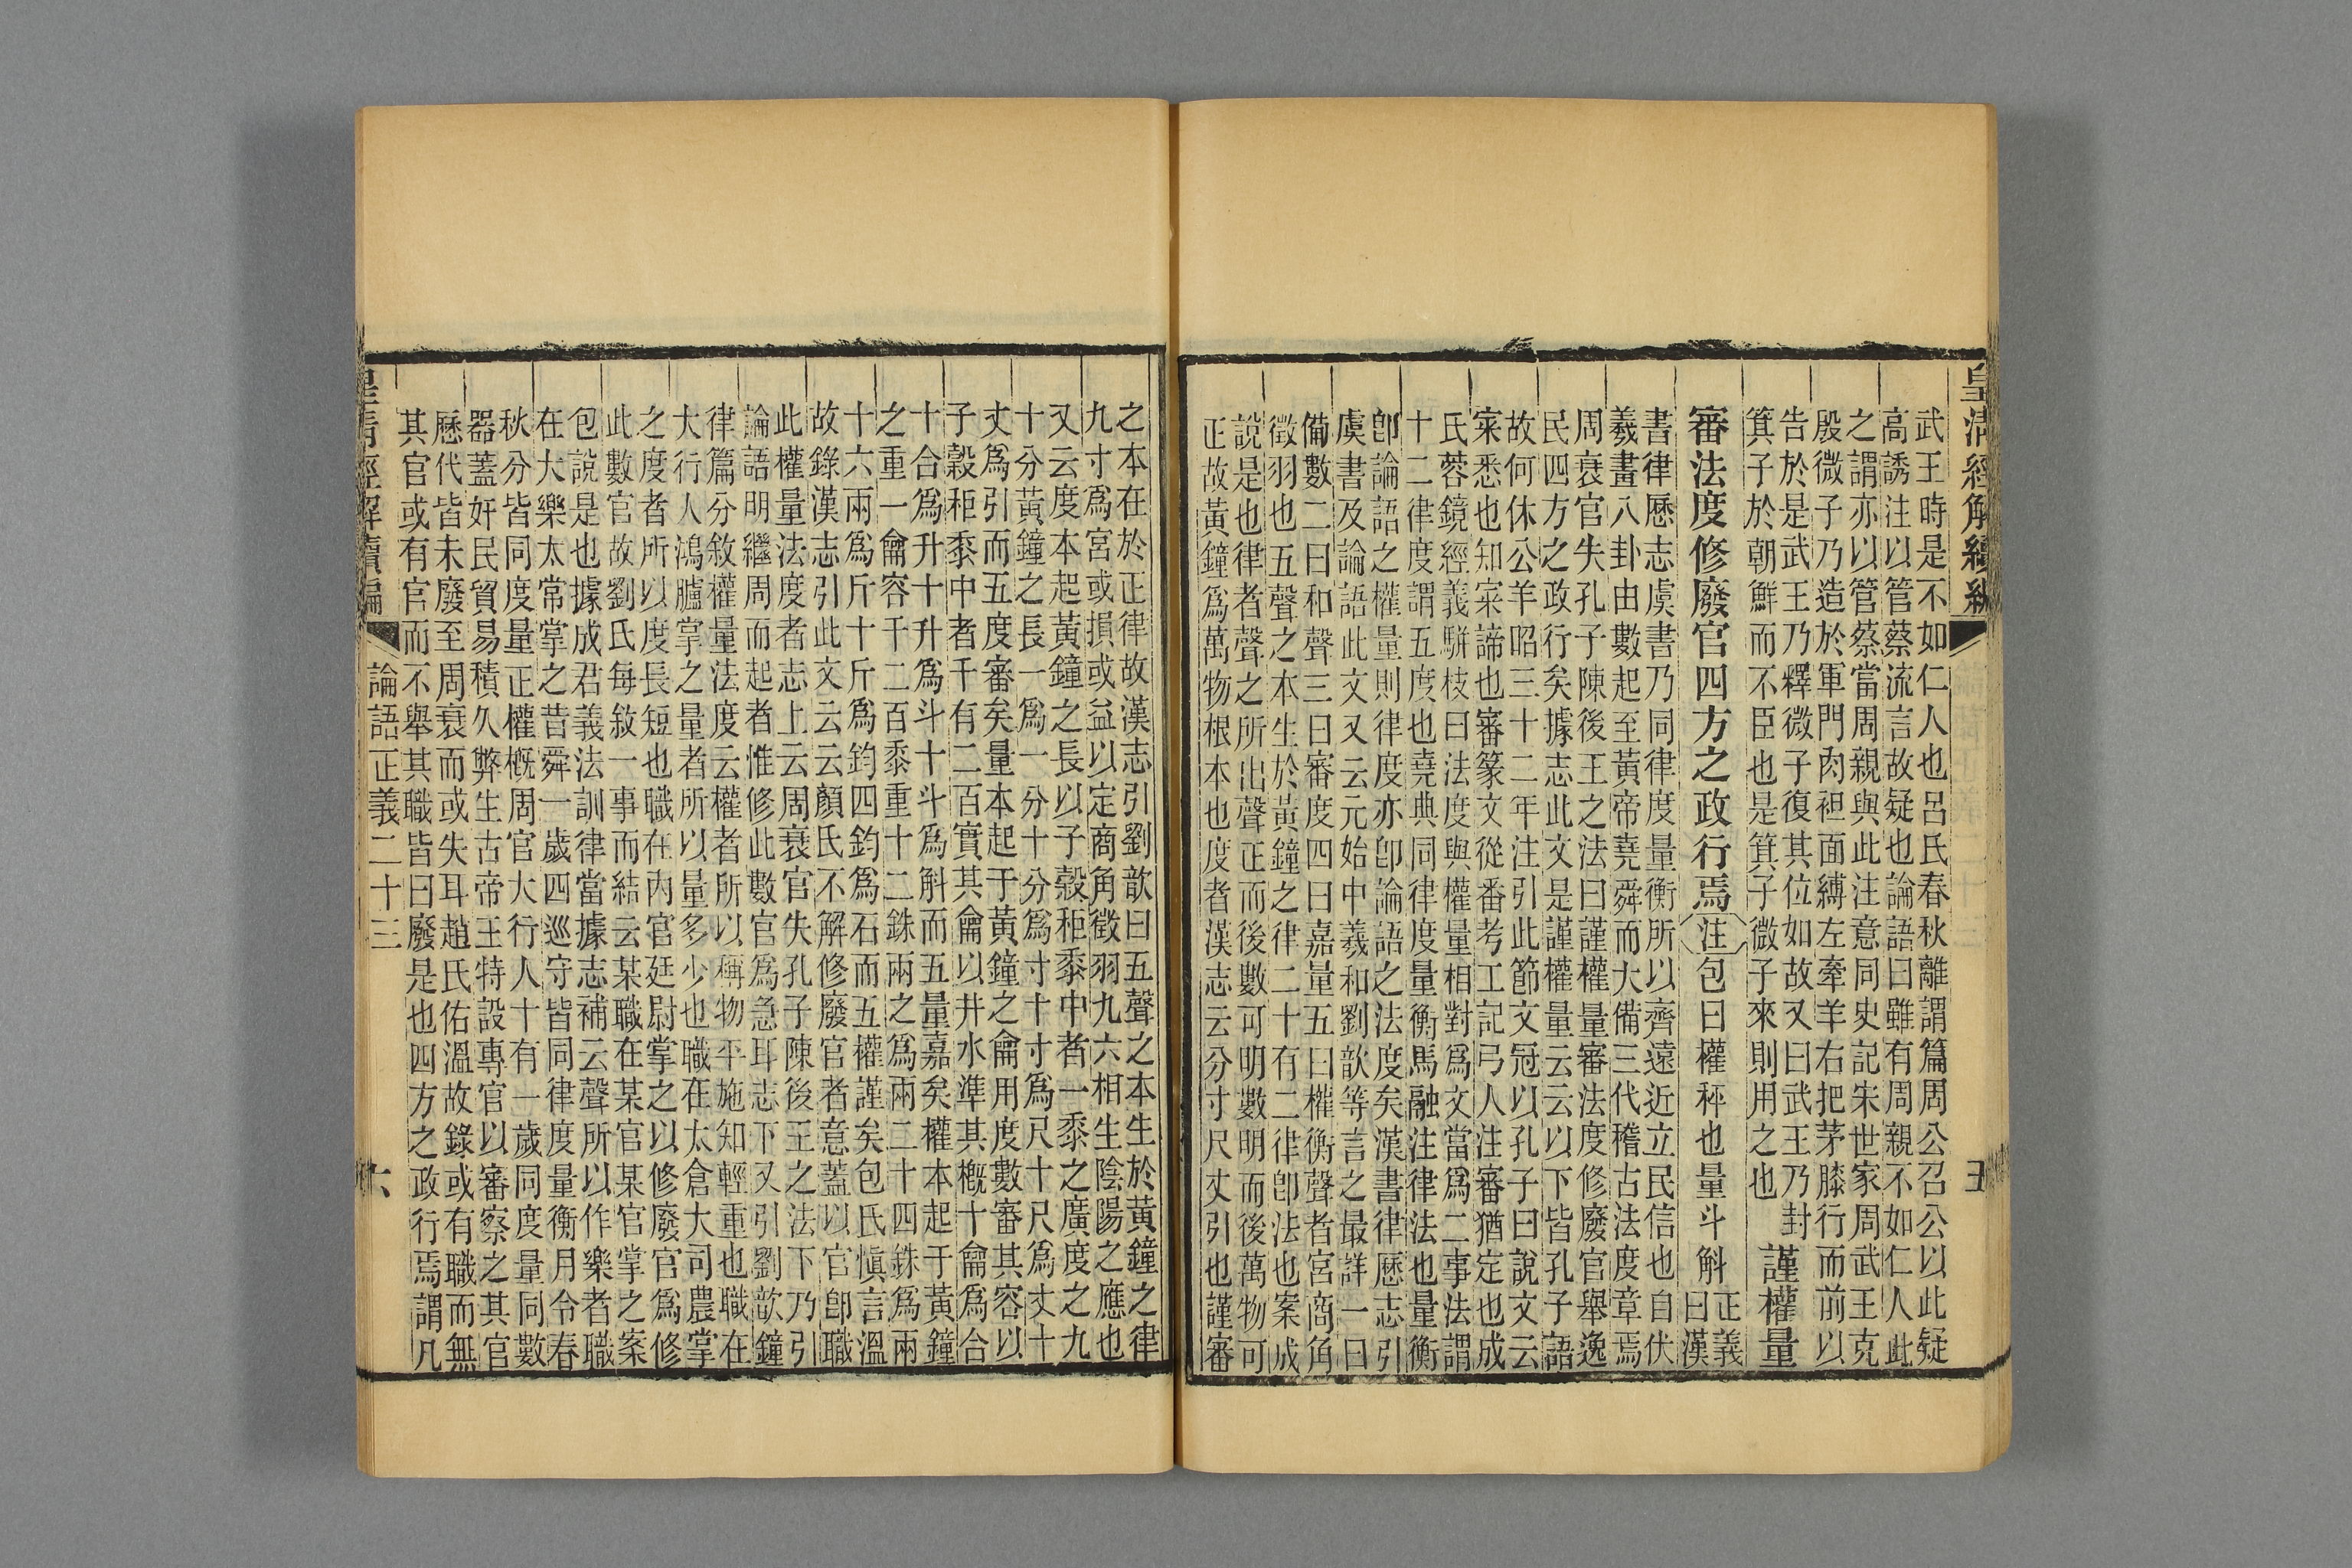 皇清經解續編
五
武王時是不如仁人也呂氏春秋離謂篇周公召公以此疑
高誘注以管蔡流言故疑也論語曰雖有周親不如仁人此
之謂亦以管蔡當周親與此注意同史記宋世家周武王克
殷微子乃造於軍門肉袒面縛左牽羊右把茅膝行而前以
告於是武王乃釋微子復其位如故又曰武王乃封
箕子於朝鮮而不臣也是箕子微子來則用之也
謹權量
審法度修廢官四方之政行焉注包曰權秤也量斗斛
正義
曰漢
書律歷志虞書乃同律度量衡所以齊遠近立民信也自伏
羲畫八卦由數起至黃帝堯舜而大備三代稽古法度章焉
周衰官失孔子陳後王之法曰謹權量審法度修廢官舉逸
民四方之政行矣據志此文是謹權量云云以下皆孔子語
故何休公羊昭三十二年注引此節文冠以孔子曰說文云
宷悉也知宷諦也審篆文從番考工記弓人注審猶定也成
氏蓉鏡經義駢枝曰法度與權量相對爲文當爲二事法謂
十二律度謂五度也堯典同律度量衡馬融注律法也量衡
卽論語之權量則律度亦卽論語之法度矣漢書律歷志引
虞書及論語此文又云元始中羲和劉歆等言之最詳一曰
備數二曰和聲三曰審度四曰嘉量五曰權衡聲者宮商角
徵羽也五聲之本生於黃鐘之律二十有二律卽法也案成
說是也律者聲之所出聲正而後數可明數明而後萬物可
正故黃鐘爲萬物根本也度者漢志云分寸尺丈引也謹審
之本在於正律故漢志引劉歆曰五聲之本生於黃鐘之律
九寸爲宮或損或益以定商角徵羽九六相生陰陽之應也
又云度本起黃鐘之長以子穀秬黍中者一黍之廣度之九
十分黃鐘之長一爲一分十分爲寸十寸爲尺十尺爲丈十
丈爲引而五度審矣量本起于黃鐘之龠用度數審其容以
子穀秬黍中者千有二百實其龠以井水準其概十龠爲合
十合爲升十升爲斗十斗爲斛而五量嘉矣權本起于黃鐘
之重一龠容千二百黍重十二銖兩之爲兩二十四銖爲兩
十六兩爲斤十斤爲鈞四鈞爲石而五權謹矣包氏愼言溫
故錄漢志引此文云云顏氏不解修廢官者意蓋以官卽職
此權量法度者志上云周衰官失孔子陳後王之法下乃引
論語明繼周而起者惟修此數官爲急耳志下又引劉歆鐘
律篇分敘權量法度云權者所以稱物平施知輕重也職在
大行人鴻臚掌之量者所以量多少也職在太倉大司農掌
之度者所以度長短也職在內官廷尉掌之以修廢官爲修
此數官故劉氏每敘一事而結云某職在某官某官掌之案
包說是也據成君義法訓律當據志補云聲所以作樂者職
在大樂太常掌之昔舜一歲四巡守皆同律度量衡月令春
秋分皆同度量正權概周官大行人十有一歲同度量同數
器蓋奸民貿易積久弊生古帝王特設專官以審察之其官
歷代皆未廢至周衰而或失耳趙氏佑溫故錄或有職而無
其官或有官而不舉其職皆曰廢是也四方之政行焉謂凡
皇清經解續編
論語正義二十三
六